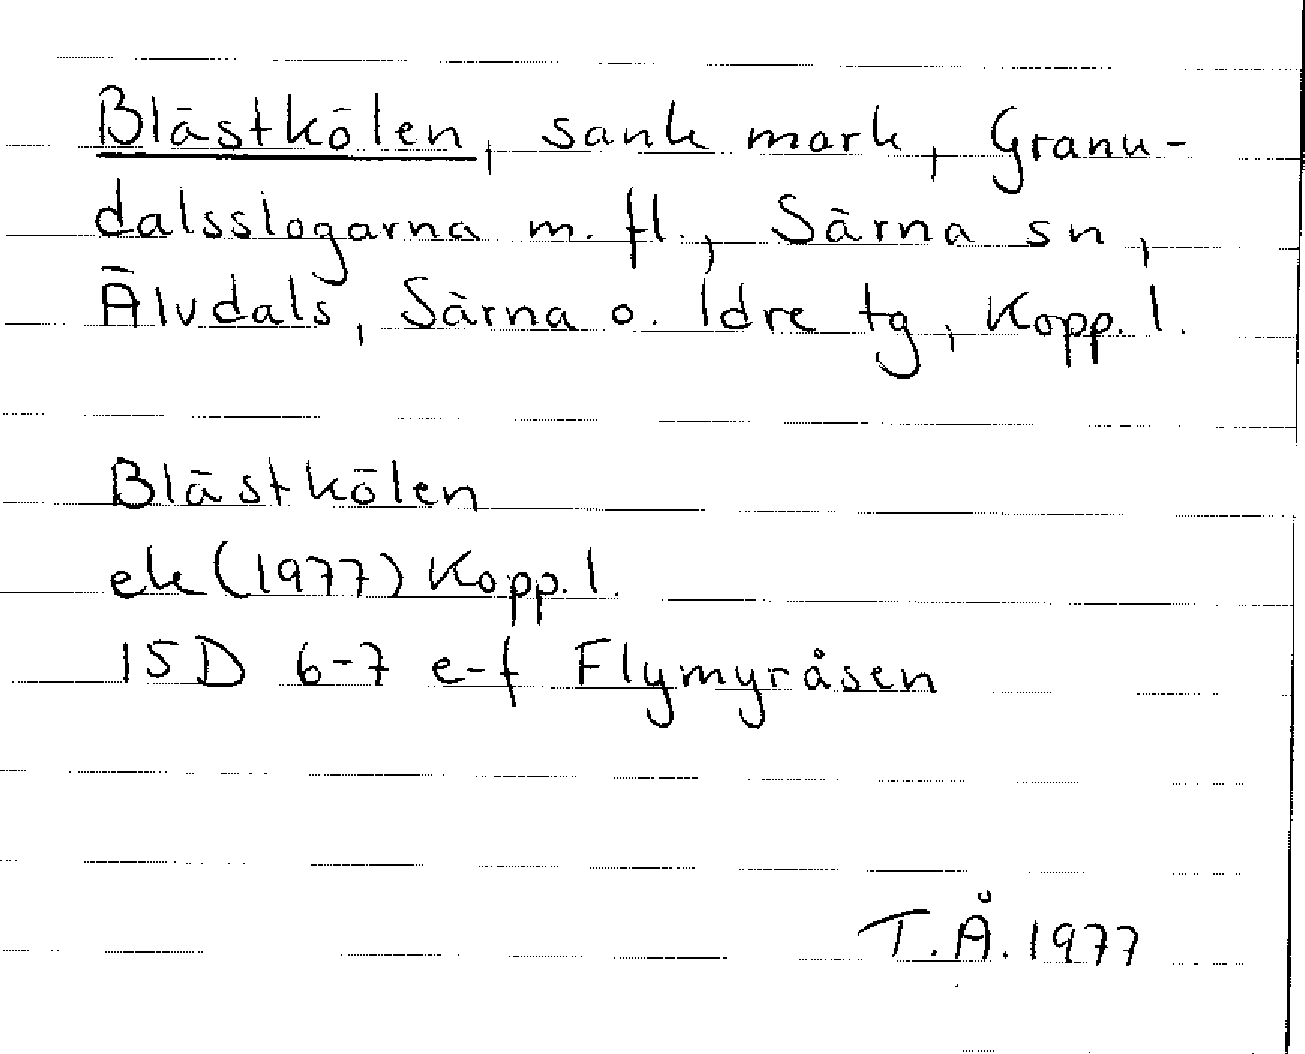 Blästkölen, sank mark, Granu-
dalsslogarna m. fl., Särna sn,
Älvdals, Särna o. Idre tg, Kopp. l.
Blästkölen
ek (1977) Kopp. l.
15D 6-7 e-f Flymyråsen
T.Å. 1977